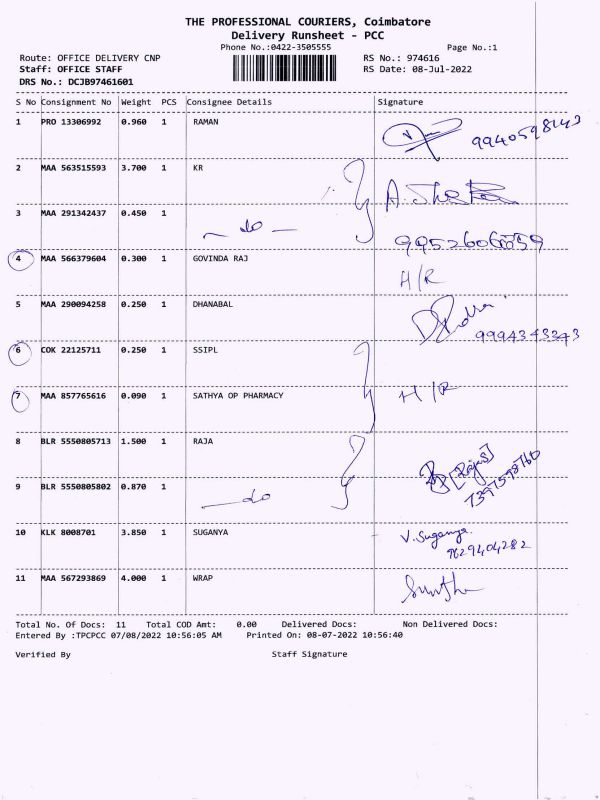 THE PROFESSIONAL COURIERS, Coimbatore
Delivery Runsheet - PCC
Phone No.:0422-3505555 Page No.:1
Route: OFFICE DELIVERY CNP RS No.: 974616
Staff: OFFICE STAFF RS Date: 08-Jul-2022
DRS No.: DCJB97461601
S No Consignment No Weight PCS Consignee Details Signature
1 PRO 13306992 0.960 1 RAMAN
2 MAA 563515593 3.700 1 KR
3 MAA 291342437 0.450 1 — do —
4 MAA 566379604 0.300 1 GOVINDA RAJ H/R
5 MAA 290094258 0.250 1 DHANABAL
9994343343
6 COK 22125711 0.250 1 SSIPL
7 MAA 857765616 0.090 1 SATHYA OP PHARMACY H/R
8 BLR 5550805713 1.500 1 RAJA
9 BLR 5550805802 0.870 1 — do
10 KLK 8008701 3.850 1 SUGANYA V. Suganya
9629404282
11 MAA 567293869 4.000 1 WRAP
Total No. Of Docs: 11 Total COD Amt: 0.00 Delivered Docs: Non Delivered Docs:
Entered By :TPCPCC 07/08/2022 10:56:05 AM Printed On: 08-07-2022 10:56:40
Verified By Staff Signature